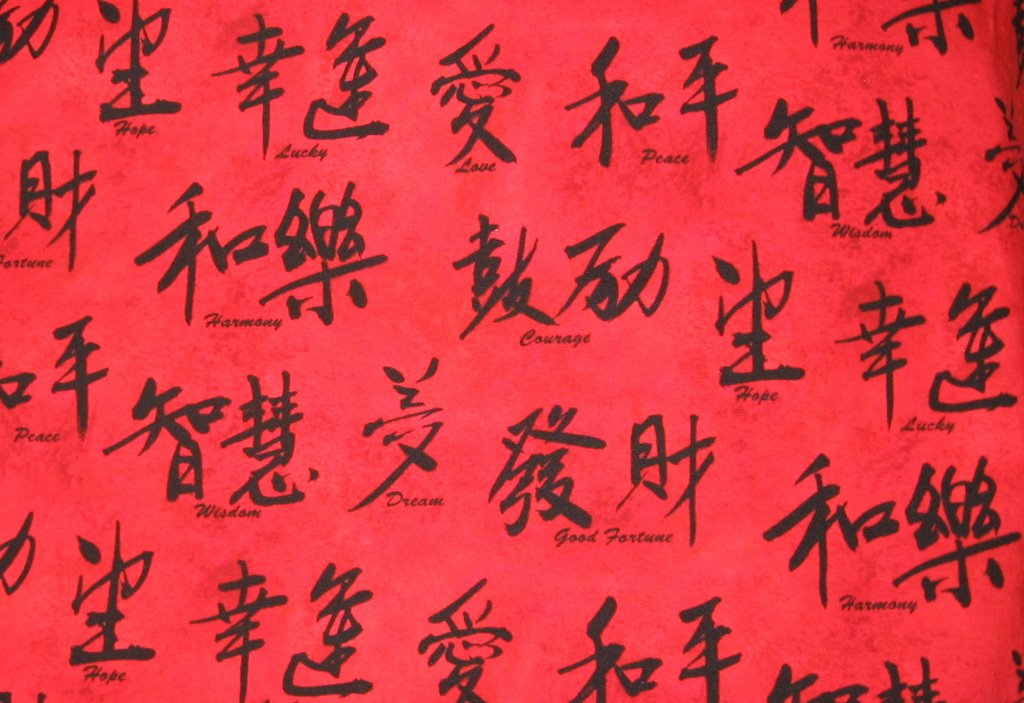 励
望
Hope
幸運
Lucky
愛
Love
和平
Peace
Harmony
智慧
Wisdom
財
Fortune
和樂
Harmony
鼓励
Courage
望
Hope
幸運
Lucky
和平
Peace
智慧
Wisdom
夢
Dream
發財
Good Fortune
和樂
Harmony
望
Hope
幸運
愛
和平
智慧